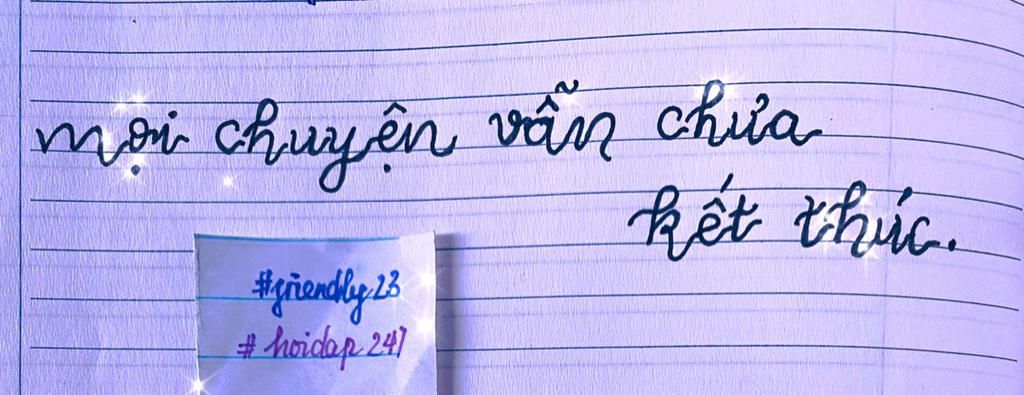 mọi chuyện vẫn chưa
kết thúc.
#friendly23
#hoidap247